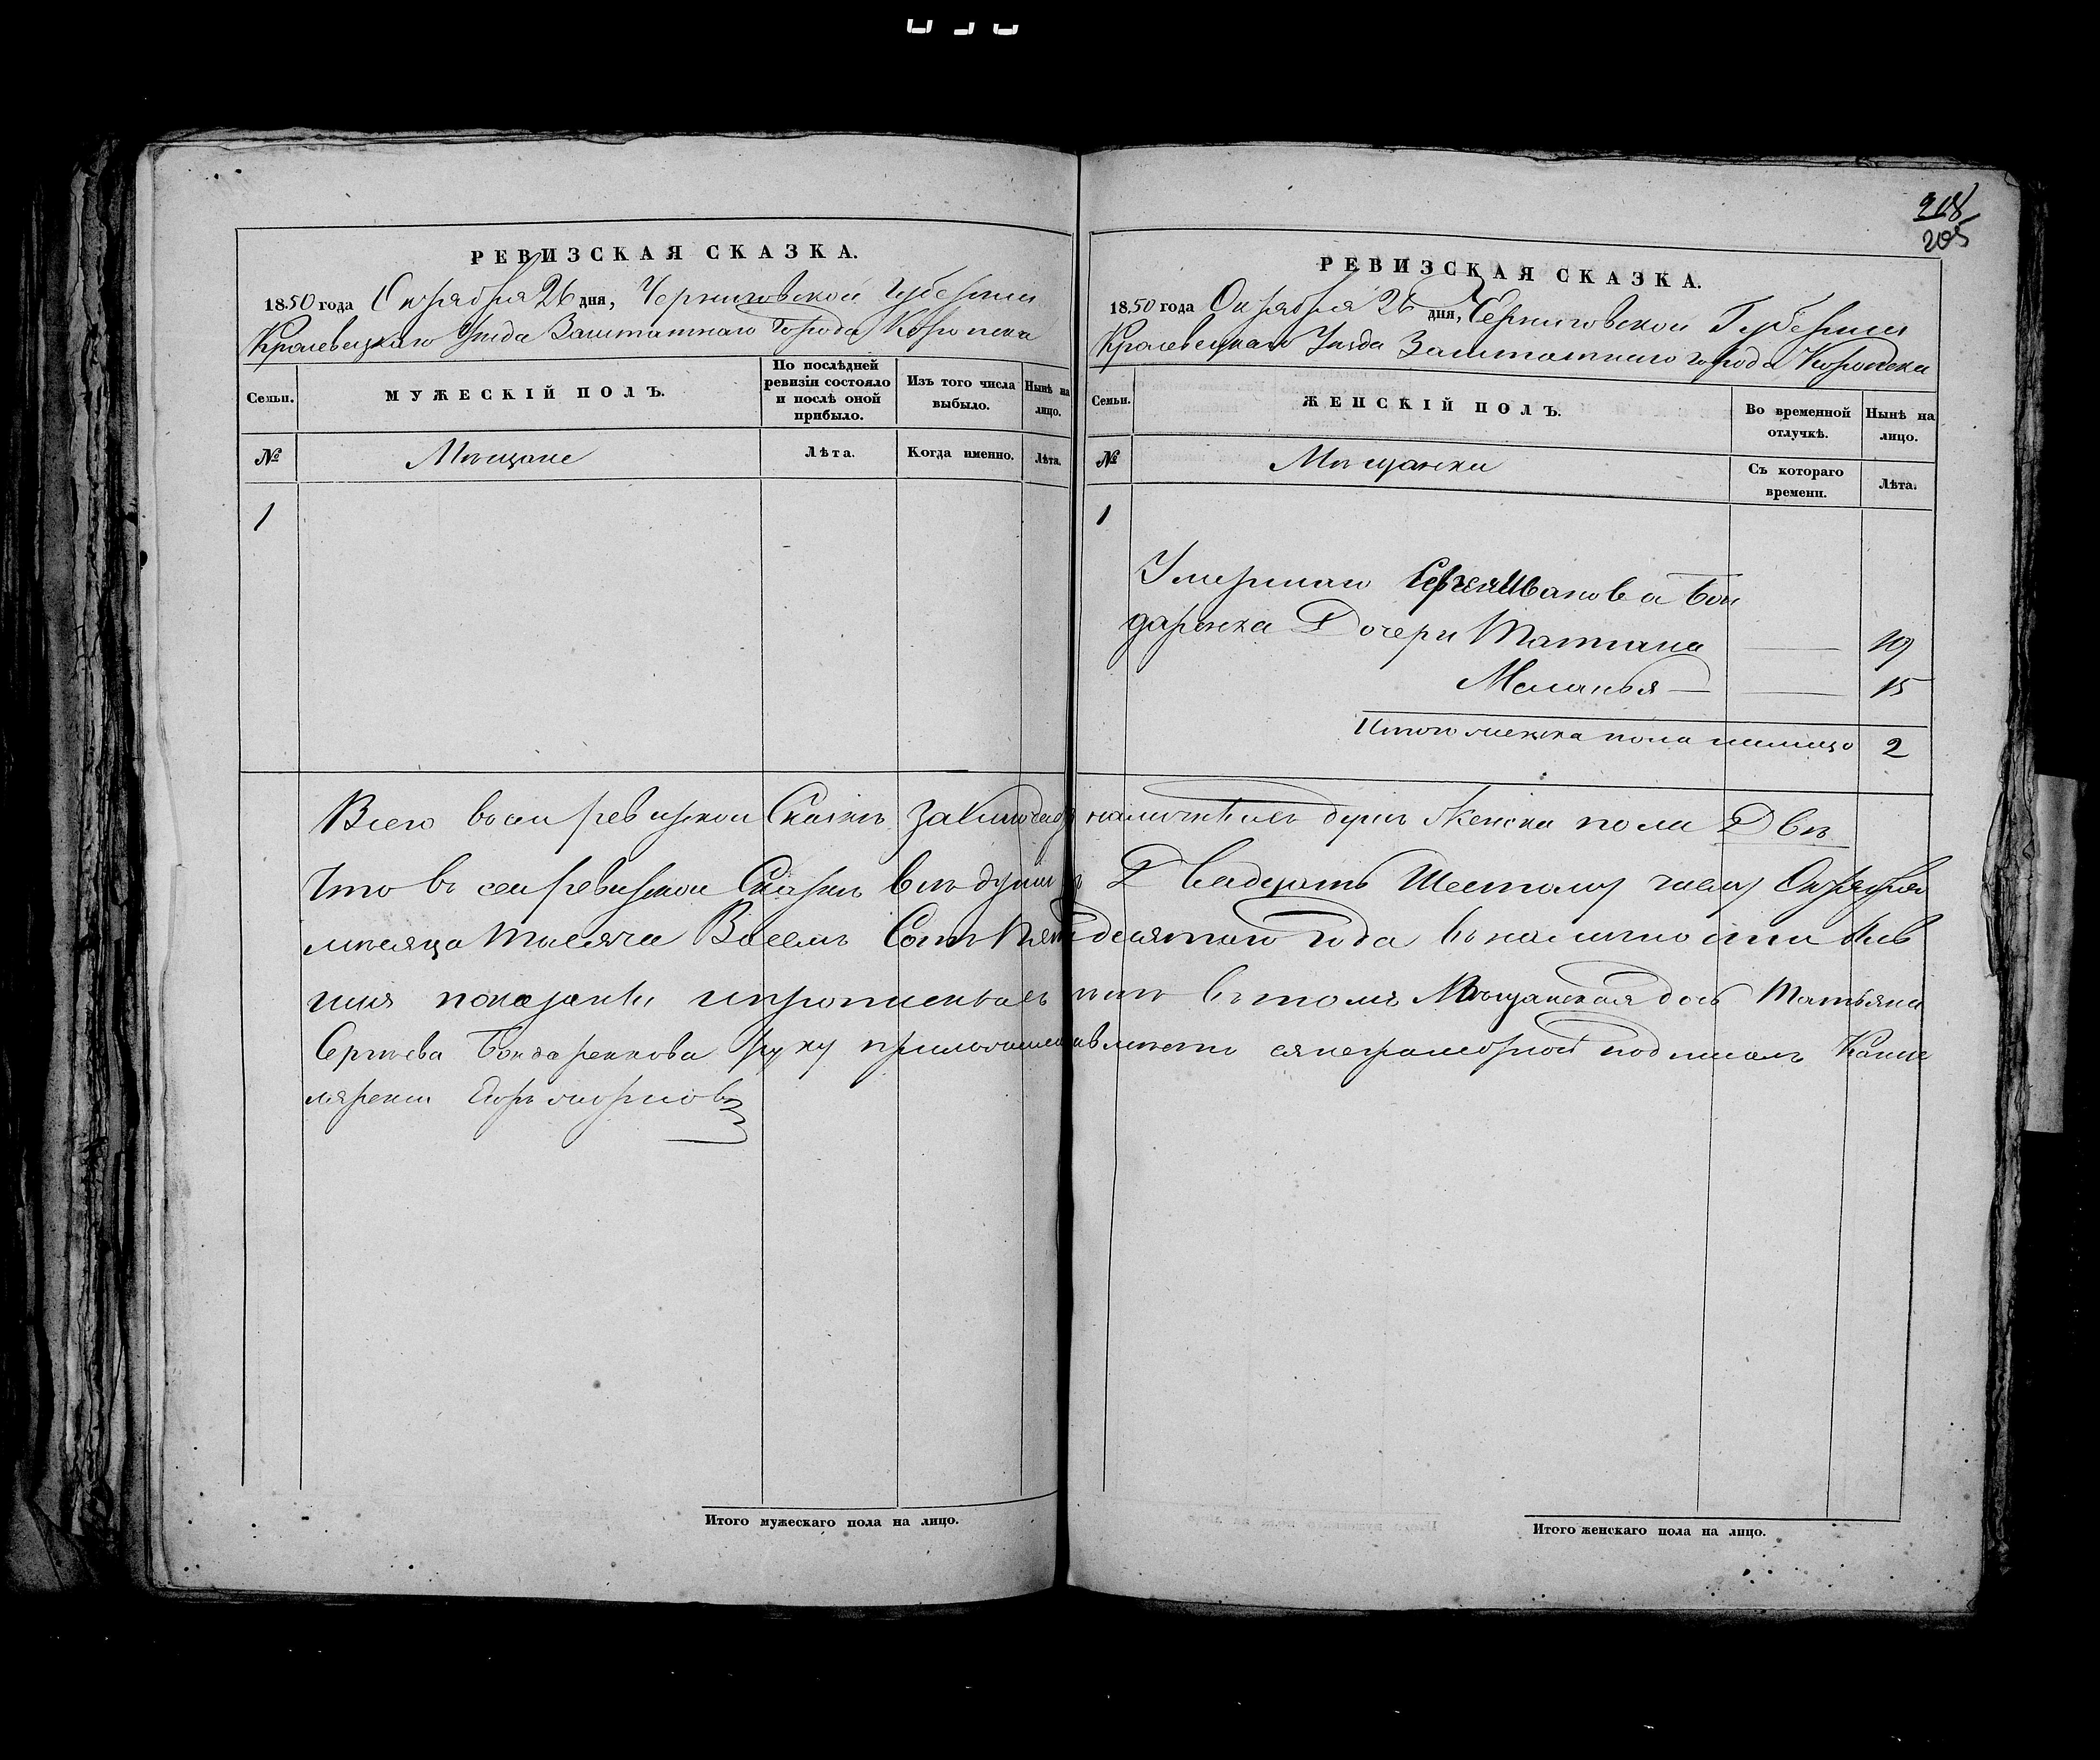 218
205
РЕВИЗСКАЯ СКАЗКА.
1850 года Октября 26 дня, Черниговской губернии
Кролевецкаго уезда Заштатнаго города Коропска
Семьи.
МУЖЕСКІЙ ПОЛЪ.
По послѣдней ревизіи состояло и послѣ оной прибыло.
Изъ того числа выбыло.
Нынѣ на лицо.
№
Мѣщане
Лѣта.
Когда именно.
Лѣта.
1
РЕВИЗСКАЯ СКАЗКА.
1850 года Октября 26 дня, Черниговской Губернии
Кролевецкаго Уезда Заштатнаго города Коропска
Семьи.
ЖЕНСКІЙ ПОЛЪ.
Во временной отлучкѣ.
Нынѣ на лицо.
№
Мѣщанки
Съ котораго времени.
Лѣта.
1
Умершаго Сергея Иванова Бон
даренка Дочери Татиана 19
Маланья 15
Итого женска пола налицо 2
Всего в сей ревизской Сказкѣ наличныхъ душъ Женска пола Двѣ
Что в сей ревизской Сказкѣ всѣ души Двадцать Шестому числу Октября
мѣсяца Тысяча Восемъ Сотъ Пятдесятаго года въ наличности
показаны въ томъ Мѣщанская дочь Татьяна
Сергѣева Бондаренкова руку приложила вместо ея неграмотной подписалъ Канце
лярскій
Итого мужескаго пола на лицо.
Итого женскаго пола на лицо.